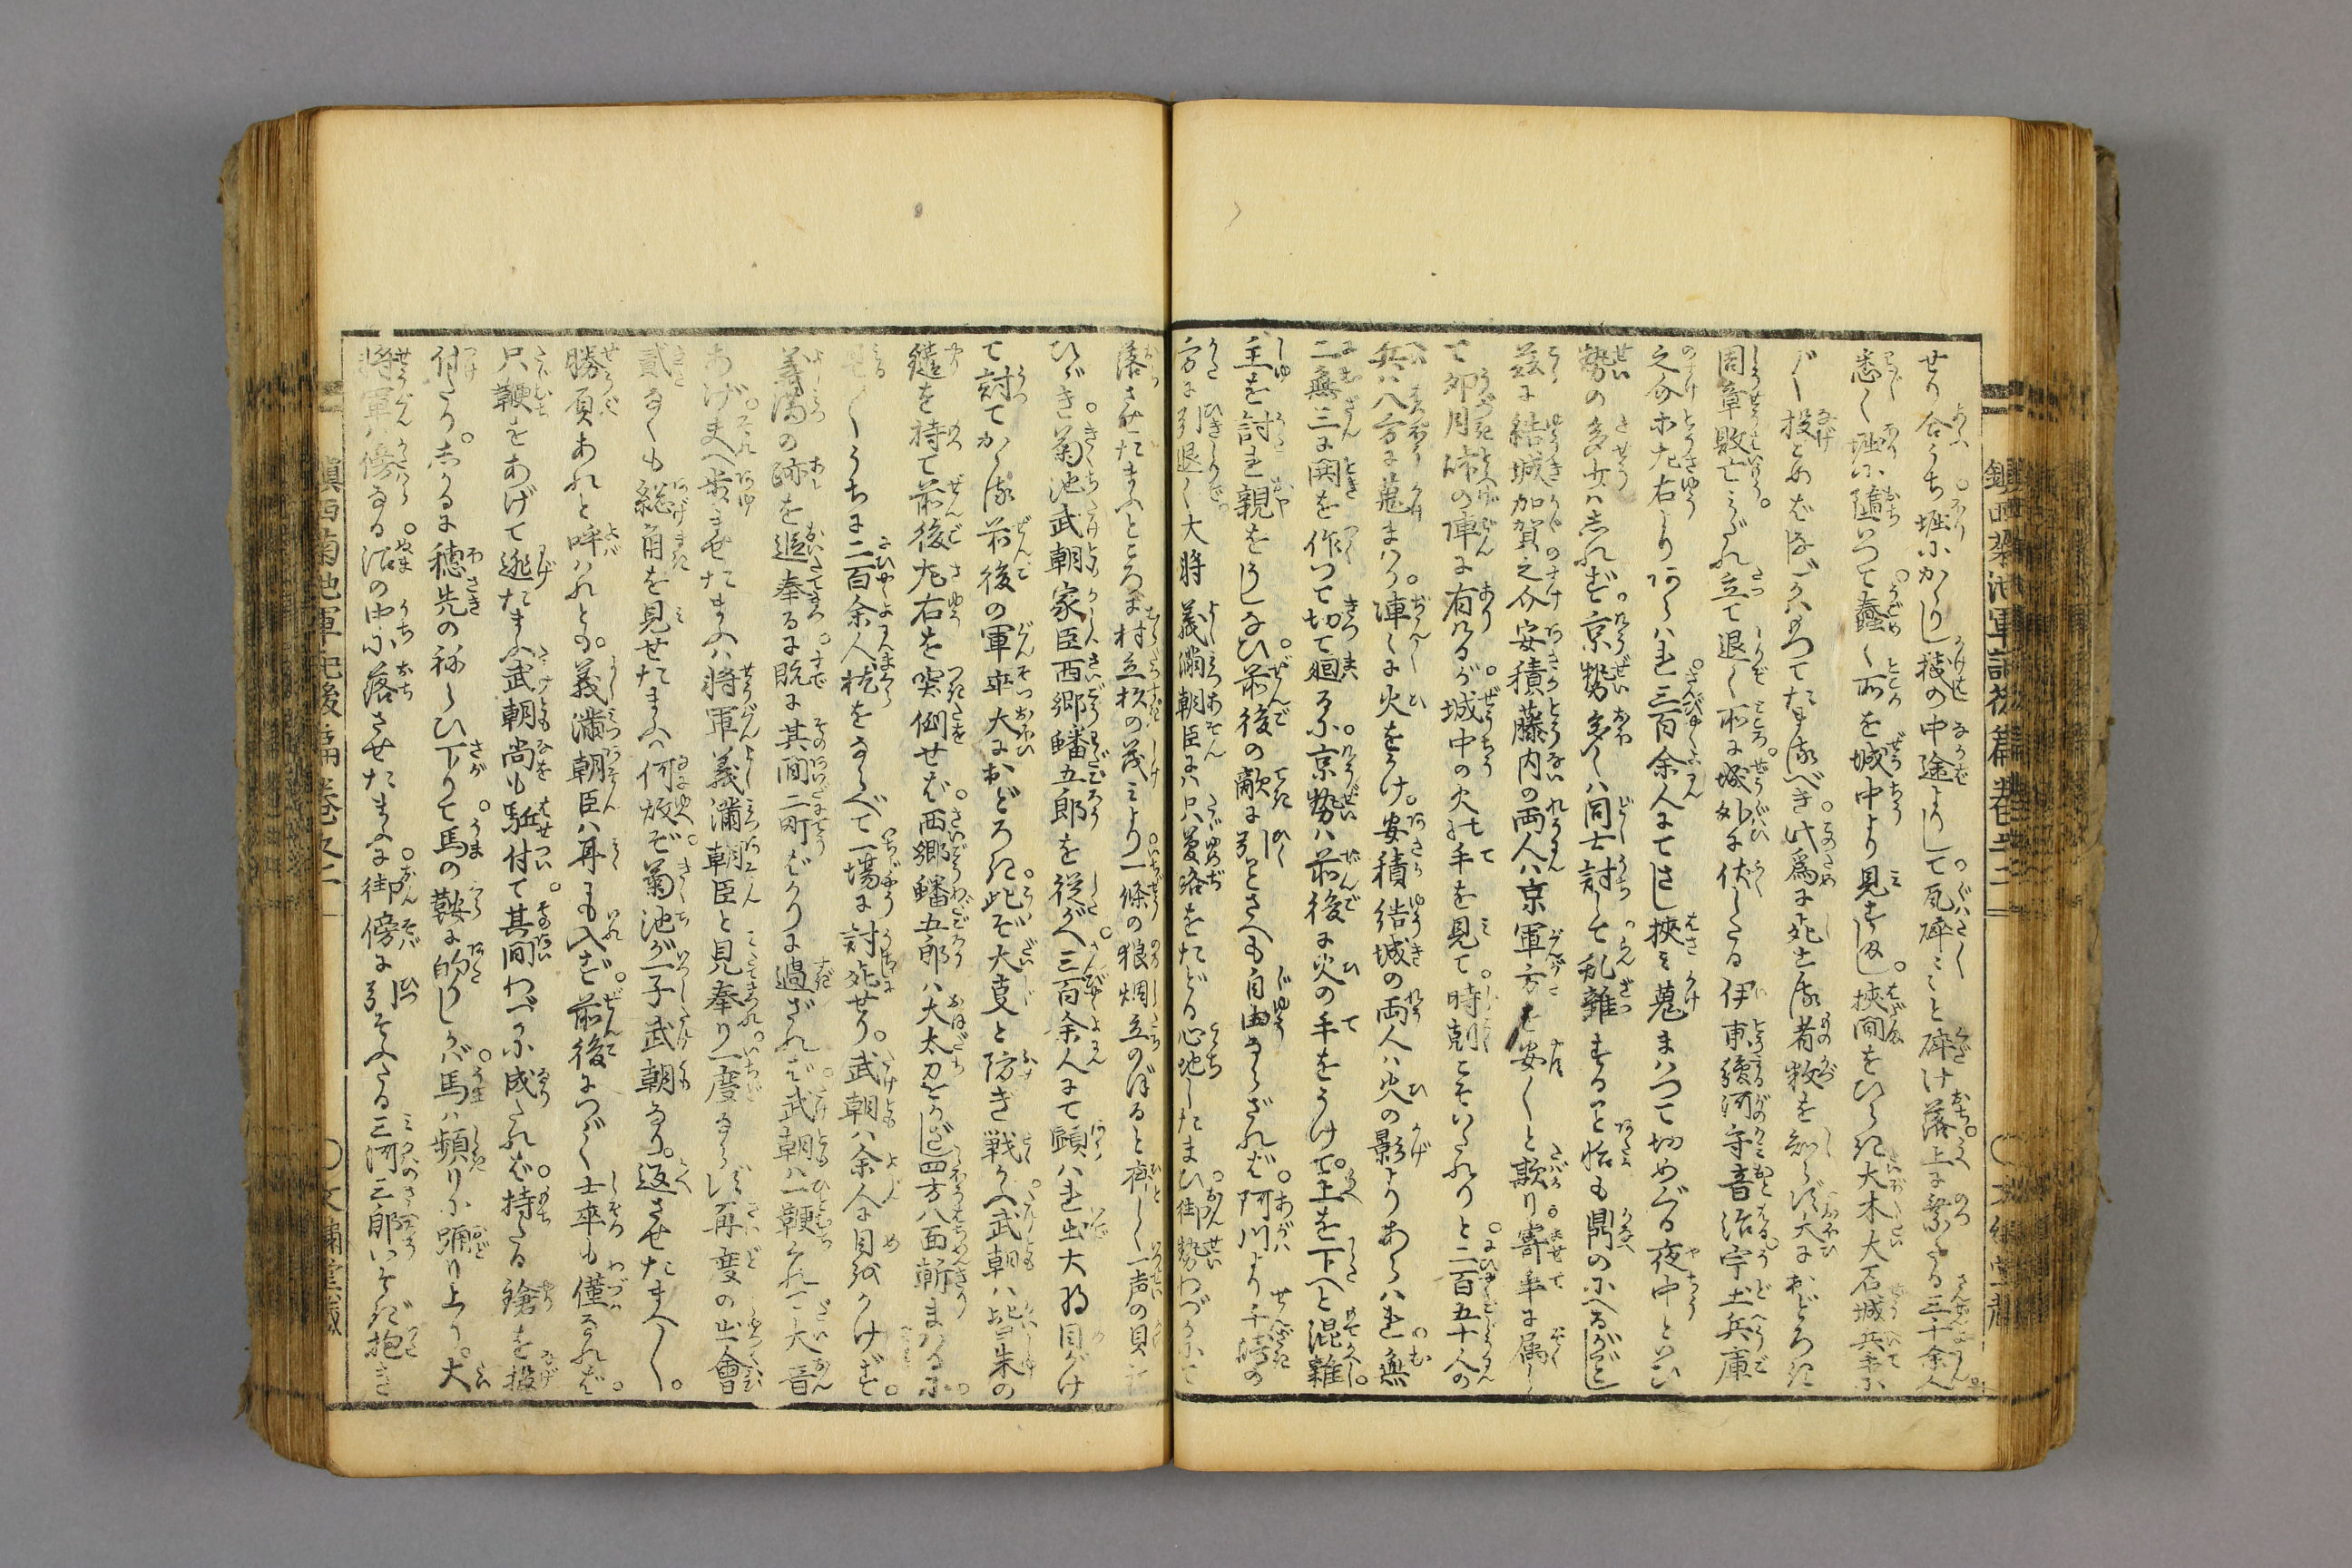 せり合うち堀にかゝりし桟の中途よりして瓦砕々と砕け落上に登る三十余人
悉く堀に堕いつて蠢く所を城中より見すまし挟間をひらき大木大石城兵手に
〴〵投とめをなげうつてたまるべき此為に死する者数を知らず大におどろき
周章敗亡みだれ立て退く所に城外に伏したる伊東駿河守音治宇土兵庫
之介木左右よりあらはれ三百余人にてさし挟み蒐まはつて切めぐる夜中といひ
勢の多少はしれず京勢多くは同士討して乱雑することも鼎のにへるがごとし
茲に結城加賀之介安積藤内の両人は京軍方を安〳〵と欺り寄手に属し
て卯月の陣に有けるが城中の火の手を見て時刻こそいたれりと二百五十人の
兵八方に蒐まはり陣々に火をかけ安積結城の両人は火の影よりあらはれ無
二無三に鬨を作つて切て廻るに京勢は前後に火の手をうけて上を下へと混雑
主を討れ親をうしなひ前後の敵に引とさへも自由ならざれば阿川より千崎の
方に引退く大将義満朝臣は只夢路をたどる心地したまひ御勢わづかにて
落させたまふところに村立杉の茂みより一條の狼烟立のぼると斉しく一声の貝
ひゞき菊池武朝家臣西郷鱶五郎を従がへ三百余人にて顕はれ出大将目がけ
て討てかゝる前後の軍卒大におどろき此ぞ大変と防ぎ戦かへ武朝は皆朱の
鑓を持て前後左右を突倒せば西郷鱶五郎は大太刀をかざし四方八面斬まはるに
見る〳〵うちに二百余人枕をならべて一場に討死せり武朝は余人に目をかけず
義満の跡を追奉るに既に其間二町ばかりに過ざれば武朝は一鞭くれて大音
あげ夫へ歩ませたまふは将軍義満朝臣と見奉り一度ならず再度の出會
貳なくも総角を見せたまふは何故ぞ菊池が一子武朝なり返させたまへ〳〵
勝負あれと呼はれども義満朝臣は耳にも入ず前後につゞく士卒も僅なれば
只鞭をあげて逃たまふ武朝尚も駈付て其間わづかに成たれば持たる鎗を投
付たりしかるに穂先のねらひ下りて馬の鞍に的りしかば馬は頻りに踊り上り大
将軍は傍なる沼の中に落させたまふに御傍に引そふたる三河三郎いそぎ抱き
鎮西菊池軍記後篇巻之二